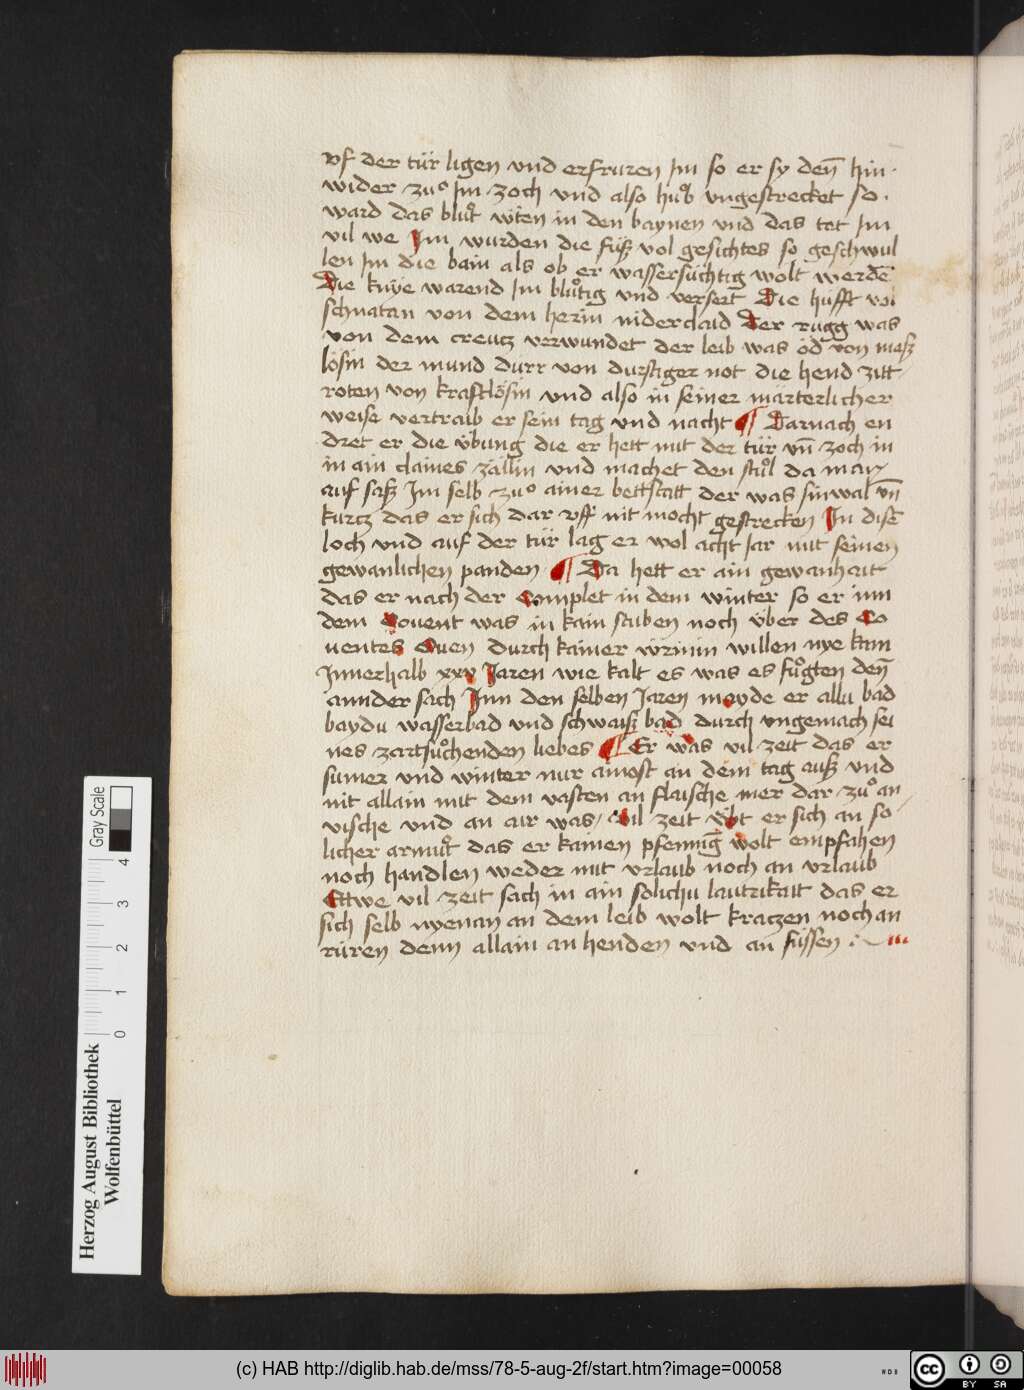 vf der tür ligen vnd erfruren Im so er sy den̄ hin
wider zuͦ Im zoch vnd also huͦb vngestrecket so
ward das bluͦt wͤten in den baynen vnd das tet Im
vil we Im wurden die füß vol gesichtes so geschwul
len Im die bain als ob er wassersüchtig wolt werdē
Die knÿe warend Im bluͦtig vnd versert Die hufft vol
schnatan von dem herin niderclaid Der rugg was
von dem creutz verwundet der leib was öd von meß
lösin der mund dürr von durstiger not die hend zitt
roten von kraftlösin vnd also in seiner marterlicher
weise vertraib er sein tag vnd nacht ¶ Darnach en
dret er die übung die er hett mit der tür vn̄ zoch in
in ain claines zällin vnd machet den stuͦl da man
auf saß Im selb zuͦ ainer bettstatt der was sinwal vn̄
kurtz das er sich dar vff nit mocht gestrecken In disē
loch vnd auf der tür lag er wol acht Jar mit seinen
gewanlichen panden ¶ Da hett er ain gewanhait
das er nach der Complet in dem winter so er inn
dem Couent was in kain stuben noch über des Co
uentes Ouen durch kainer wͤrmin willen nye kam
Innerhalb xxv Jaren wie kalt es was es fuͦgten den̄
annder sach Inn den selben Jaren meyde er allu bad
baydu wasserbad vnd schwaiß bad durch vngemach sei
nes zartsuͦchenden liebes ¶ Er was vil zeit das er
sumer vnd winter nur ainost an dem tag auß vnd
nit allain mit dem vasten an flaische mer dar zuͦ an
vische vnd an air was / Vil zeit übt er sich an so
licher armuͦt das er kainen pfennīg wolt empfahen
noch handlen weder mit vrlaub noch an vrlaub
Ettwe vil zeit sach in ain solichu lautrikait das er
sich selb nyenan an dem leib wolt kratzen noch an
rüren denn allain an henden vnd an füssen
Herzog August Bibliothek
Wolfenbüttel
Gray Scale
0 1 2 3 4
(c) HAB http://diglib.hab.de/mss/78-5-aug-2f/start.htm?image=00058
WDB
cc BY SA